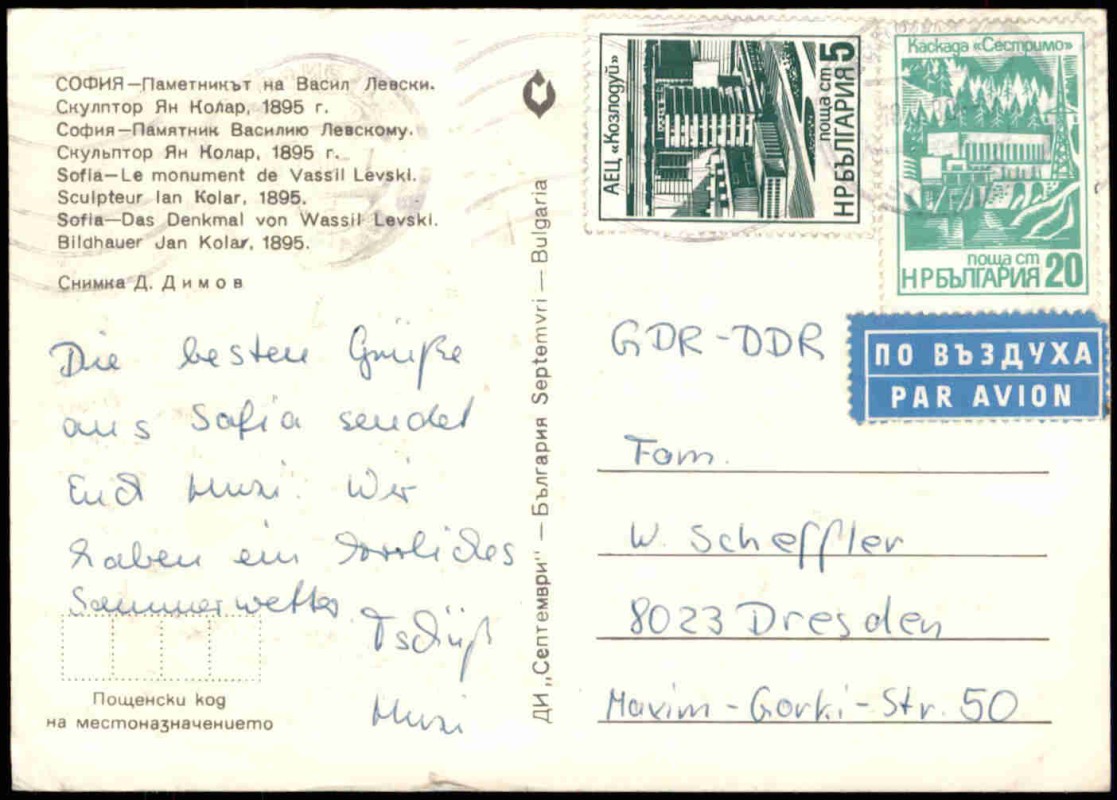 СОФИЯ—Паметникът на Васил Левски.
Скулптор Ян Колар, 1895 г.
София—Памятник Василию Левскому.
Скульптор Ян Колар, 1895 г.
Sofia—Le monument de Vassil Levski.
Sculpteur Ian Kolar, 1895.
Sofia—Das Denkmal von Wassil Levski.
Bildhauer Jan Kolar, 1895.
Снимка Д. Димов
Die besten Grüße
aus Sofia sendet
Euch Muzi. Wir
haben ein herrliches
Sommerwetter.
Tschüß
Muzi
Пощенски код
на местоназначението
ДИ „Септември" — България Septemvri — Bulgaria
АЕЦ «Козлодуй»
поща ст 5
НРБЪЛГАРИЯ
Каскада «Сестримо»
поща ст
НРБЪЛГАРИЯ 20
ПО ВЪЗДУХА
PAR AVION
GDR-DDR
Fam.
W. Scheffler
8023 Dresden
Maxim-Gorki-Str. 50